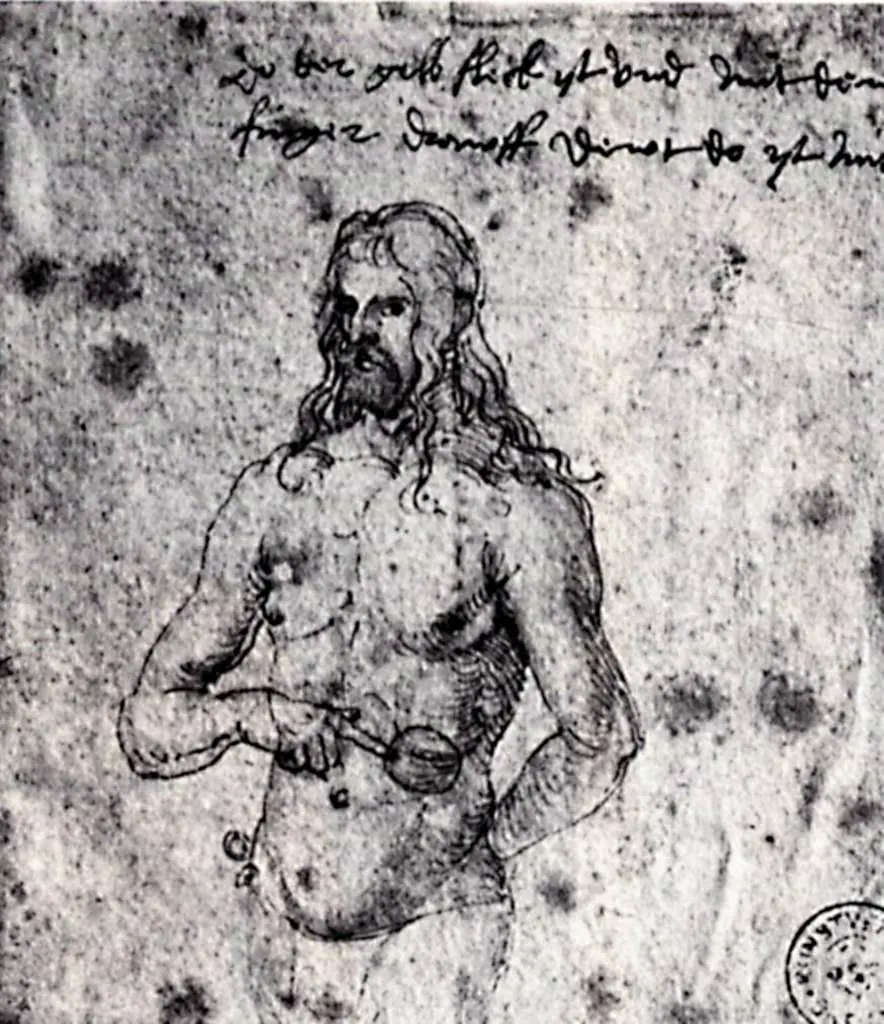 Do der gelb fleck yst vnd mit dem
finger drawff dewt do yst mir
KUNSTVE